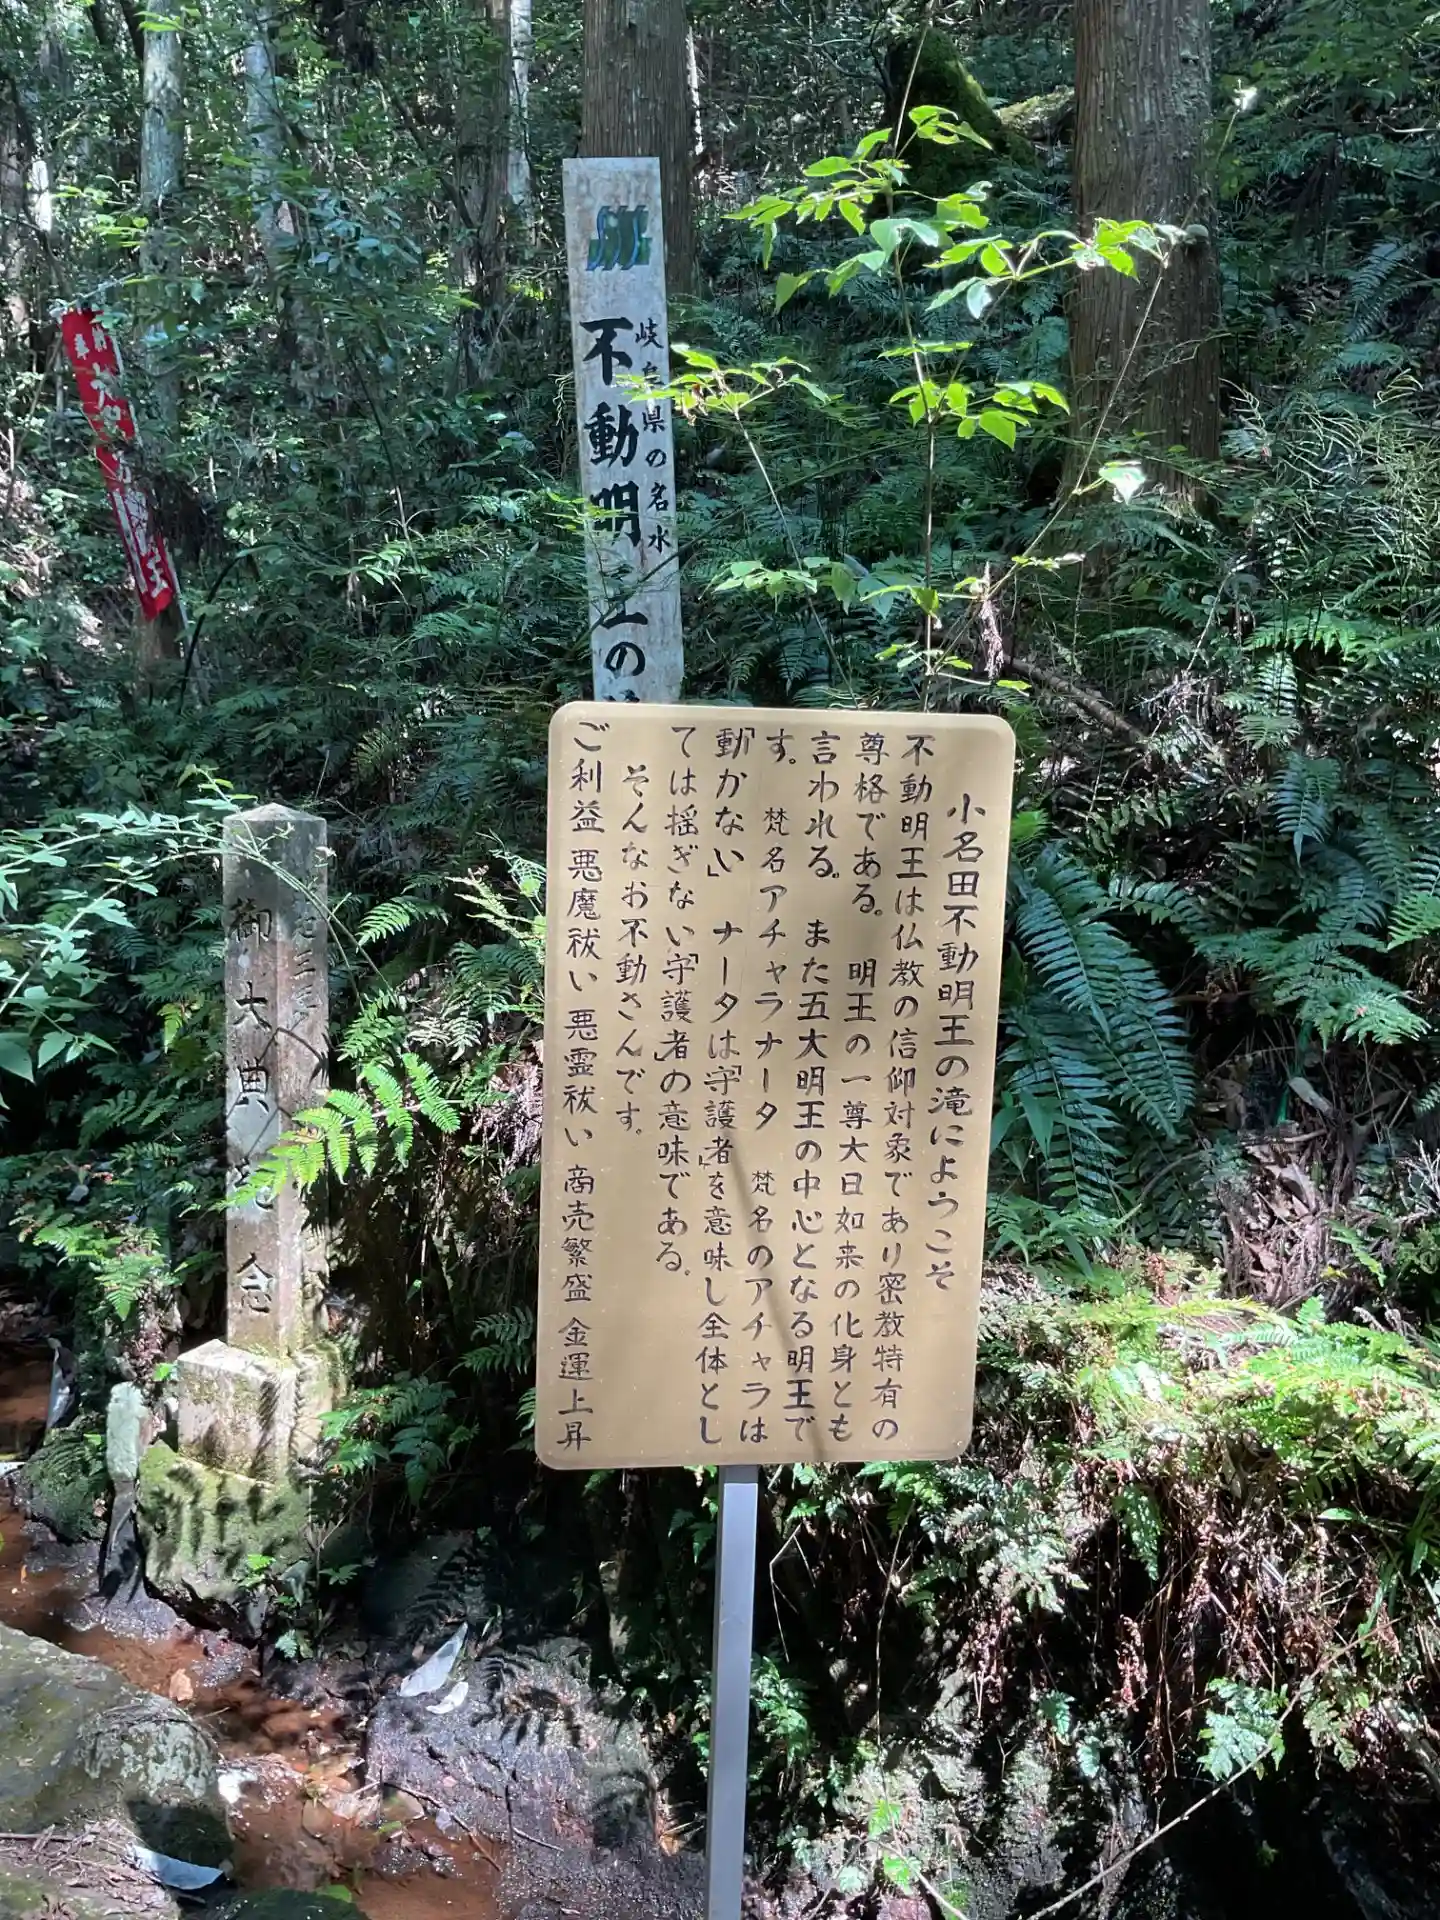 小名田不動明王の滝にようこそ
不動明王は仏教の信仰対象であり密教特有の
尊格である。 明王の一尊大日如来の化身とも
言われる。 また五大明王の中心となる明王で
す。 梵名アチャラナータ 梵名のアチャラは
「動かない」 ナータは「守護者」を意味し全体とし
ては揺ぎない「守護者」の意味である。
そんなお不動さんです。
ご利益 悪魔祓い 悪霊祓い 商売繁盛 金運上昇
岐阜県の名水
不動明王の
御大典記念